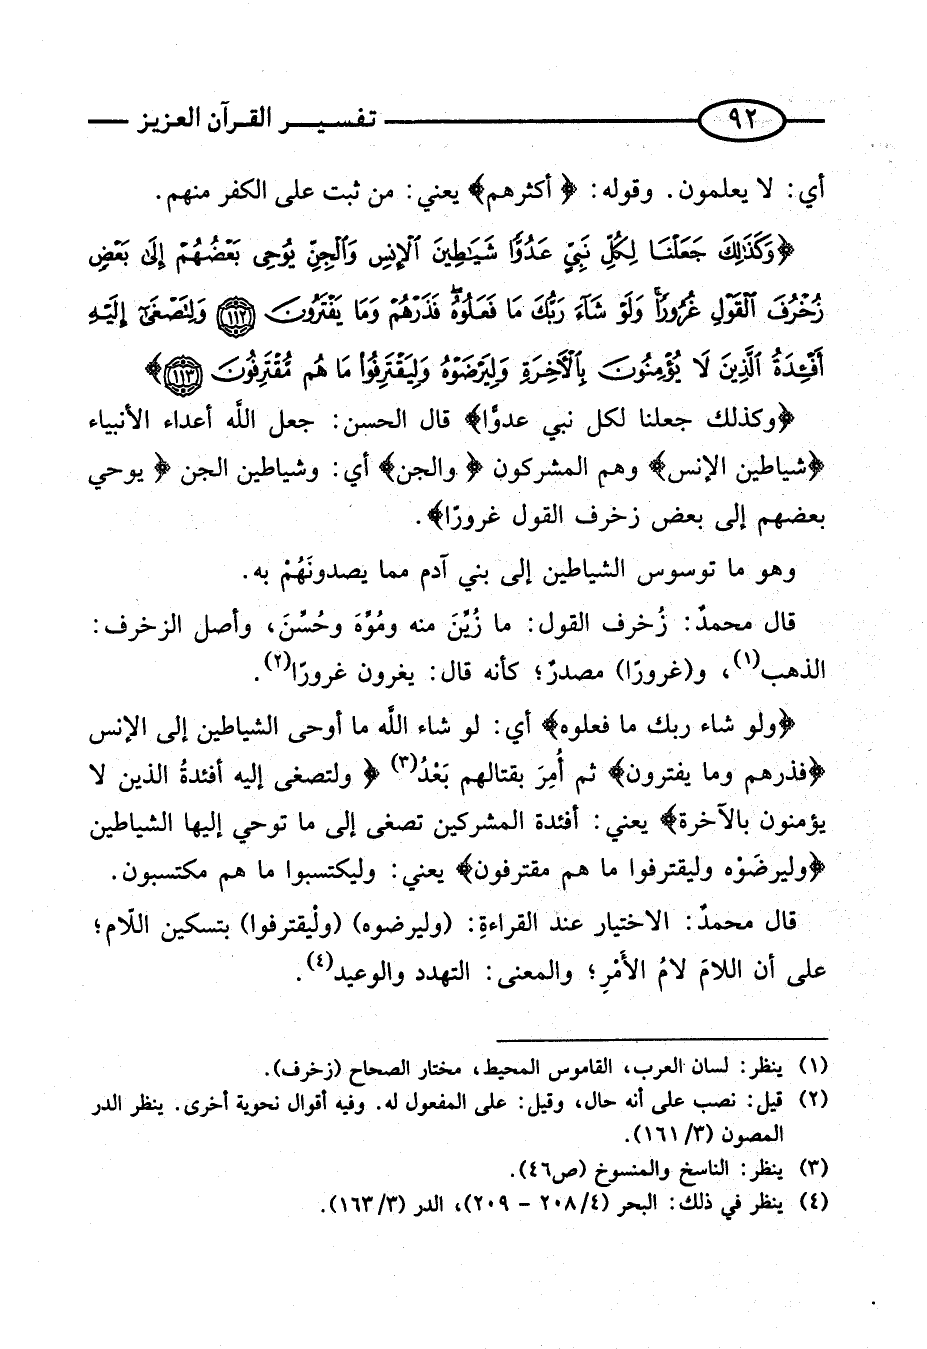 ٩٢ تفسير القرآن العزيز
أي: لا يعلمون. وقوله: ﴿أكثرهم﴾ يعني: من ثبت على الكفر منهم.
﴿وَكَذَٰلِكَ جَعَلْنَا لِكُلِّ نَبِيٍّ عَدُوًّا شَيَٰطِينَ ٱلْإِنسِ وَٱلْجِنِّ يُوحِى بَعْضُهُمْ إِلَىٰ بَعْضٍ
زُخْرُفَ ٱلْقَوْلِ غُرُورًا ۚ وَلَوْ شَآءَ رَبُّكَ مَا فَعَلُوهُ ۖ فَذَرْهُمْ وَمَا يَفْتَرُونَ ١١٢ وَلِتَصْغَىٰٓ إِلَيْهِ
أَفْـِٔدَةُ ٱلَّذِينَ لَا يُؤْمِنُونَ بِٱلْأٓخِرَةِ وَلِيَرْضَوْهُ وَلِيَقْتَرِفُوا۟ مَا هُم مُّقْتَرِفُونَ ١١٣﴾
﴿وكذلك جعلنا لكل نبي عدوًّا﴾ قال الحسن: جعل اللَّه أعداء الأنبياء
﴿شياطين الإنس﴾ وهم المشركون ﴿والجن﴾ أي: وشياطين الجن ﴿يوحي
بعضهم إلى بعض زخرف القول غرورًا﴾.
وهو ما توسوس الشياطين إلى بني آدم مما يصدونَهُمْ به.
قال محمدٌ: زُخرف القول: ما زُيِّنَ منه ومُوِّهَ وحُسِّنَ، وأصل الزخرف:
الذهب(١)، و(غرورًا) مصدرٌ؛ كأنه قال: يغرون غرورًا(٢).
﴿ولو شاء ربك ما فعلوه﴾ أي: لو شاء اللَّه ما أوحى الشياطين إلى الإنس
﴿فذرهم وما يفترون﴾ ثم أُمِرَ بقتالهم بَعْدُ(٣) ﴿ولتصغى إليه أفئدةُ الذين لا
يؤمنون بالآخرة﴾ يعني: أفئدة المشركين تصغى إلى ما توحي إليها الشياطين
﴿وليرضَوْه وليقترفوا ما هم مقترفون﴾ يعني: وليكتسبوا ما هم مكتسبون.
قال محمدٌ: الاختيار عند القراءةِ: (وليرضوه) (ولْيقترفوا) بتسكين اللّام؛
على أن اللامَ لامُ الأَمْرِ؛ والمعنى: التهدد والوعيد(٤).
(١) ينظر: لسان العرب، القاموس المحيط، مختار الصحاح (زخرف).
(٢) قيل: نصب على أنه حال، وقيل: على المفعول له. وفيه أقوال نحوية أخرى. ينظر الدر
المصون (٣/ ١٦١).
(٣) ينظر: الناسخ والمنسوخ (ص٤٦).
(٤) ينظر في ذلك: البحر (٤/ ٢٠٨ - ٢٠٩)، الدر (٣/ ١٦٣).